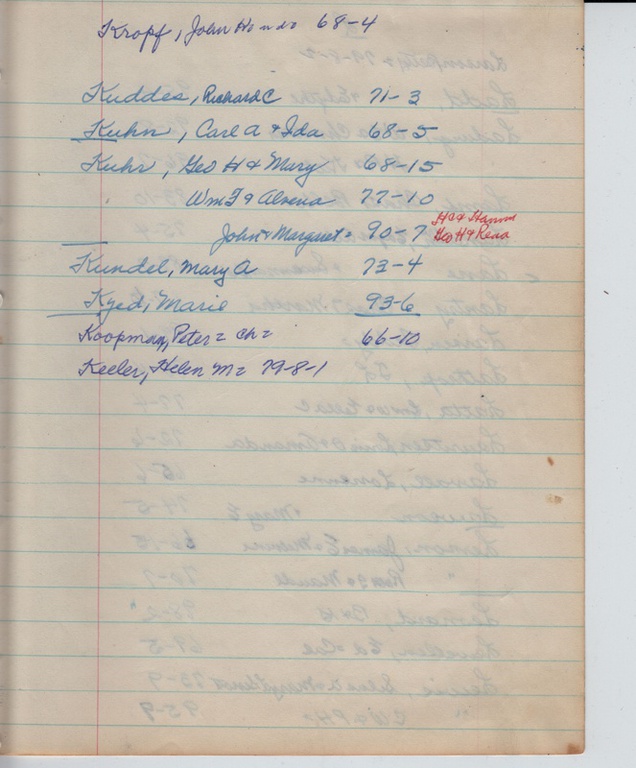 Kropf, John H 68-4
Kuddes, Richard C 71-3
Kuhn, Carl A & Ida 68-5
Kuhr, Geo H & Mary 68-15
Wm F & Alvena 77-10
John & Margaret 90-7
Geo H &
Kundel, Mary A 73-4
Kyed, Marie 93-6
Koopman, Peter = Ch = 66-10
Keeler, Helen M = 79-8-1